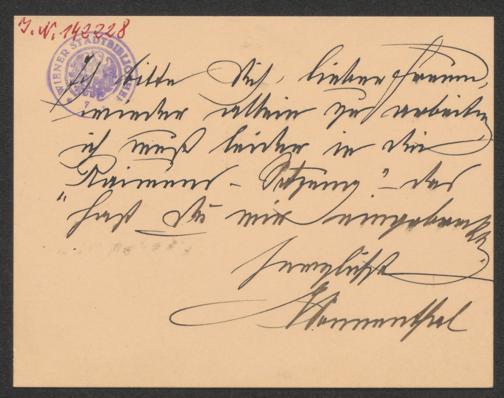 I. N. 142228
WIENER STADTBIBLIOTHEK
Ich bitte Dich, lieber Freund,
wieder allein zu arbeiten,
ich muß leider in die
Raimund-Sitzung" – das
"hast Du mir eingebrockt.
Herzlichst
Sonnenthal